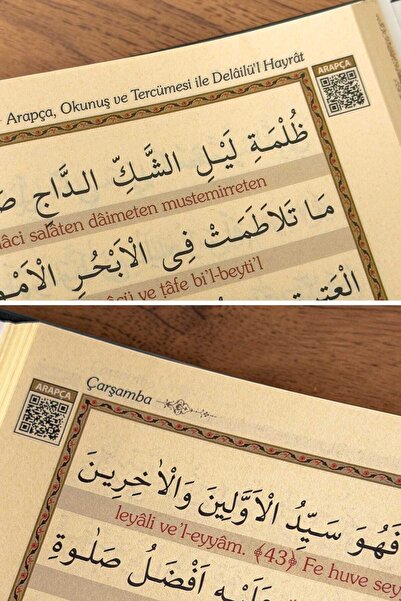 Arapça, Okunuş ve Tercümesi ile Delâilü'l Hayrât
ARAPÇA
ظُلْمَةِ لَيْلِ الشَّكِّ الدَّاجِ
salâten dâimeten mustemirreten
مَا تَلَاطَمَتْ فِى الْاَبْحُرِ
ve ṭâfe bi'l-beyti'l
Çarşamba
ARAPÇA
فَهُوَ سَيِّدُ الْاَوَّلِينَ وَالْاٰخِرِينَ
leyâli ve'l-eyyâm. ﴾43﴿ Fe huve
اَفْضَلُ صَلٰوةِ